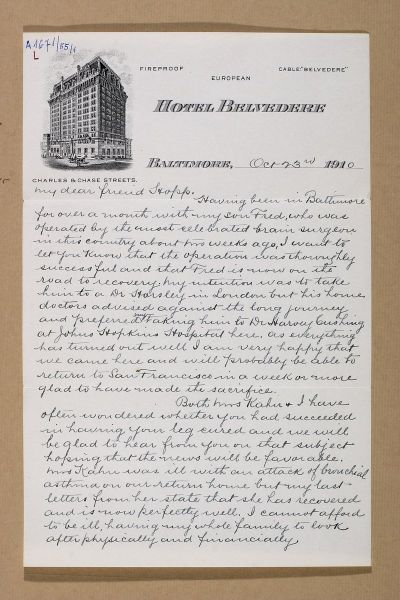 A1671/55/1
L
FIREPROOF
EUROPEAN
CABLE "BELVEDERE"
HOTEL BELVEDERE
BALTIMORE, Oct 23rd 1910
CHARLES & CHASE STREETS.
My dear friend Hopp.
Having been in Baltimore
for over a month with my son Fred, who was
operated by the most celebrated brain surgeon
in this country about two weeks ago, I want to
let you know that the operation was thoroughly
successful and that Fred is now on the
road to recovery. My intention was to take
him to a Dr Horsley in London but his home
doctors advised against the long journey
and preferred taking him to Dr Harvey Cushing
at Johns Hopkins Hospital here. As everything
has turned out well I am very happy that
we came here and will probably be able to
return to San Francisco in a week or more
glad to have made the sacrifice.
Both Mrs Kahn & I have
often wondered whether you had succeeded
in having your leg cured and we will
be glad to hear from you on that subject
hoping that the news will be favorable.
Mrs Kahn was ill with an attack of bronchial
asthma on our return home but my last
letters from her state that she has recovered
and is now perfectly well. I cannot afford
to be ill, having my whole family to look
after physically and financially